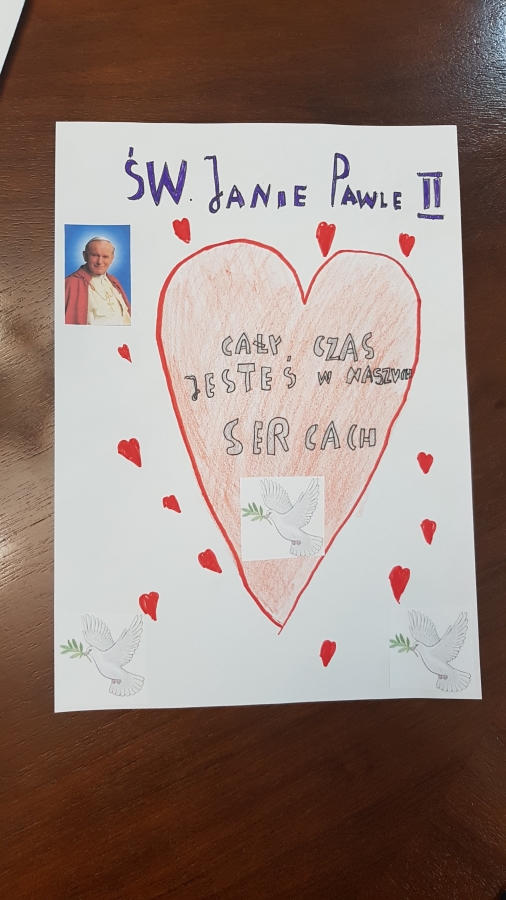 ŚW. JANIE PAWLE II
CAŁY CZAS
JESTEŚ W NASZYCH
SERCACH